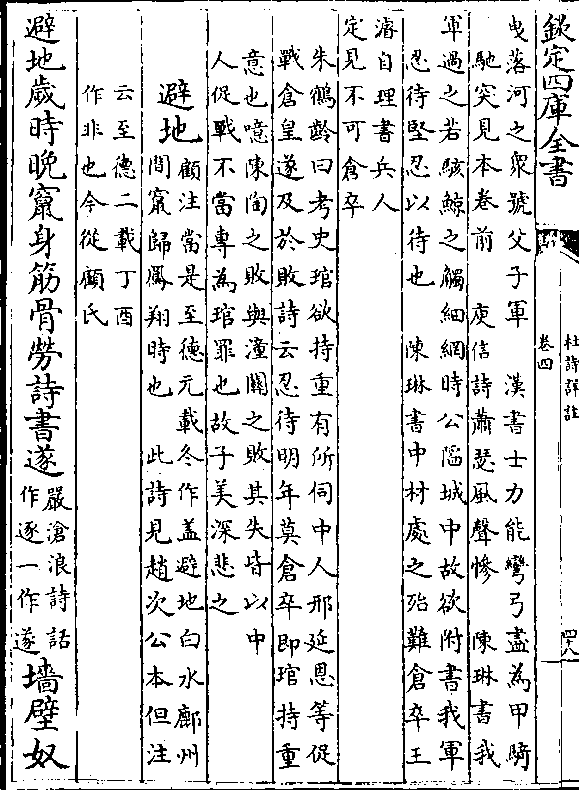 欽定四庫全書
杜詩詳註
卷四
四八
曳落河之衆號父子軍　漢書士力能彎弓盡為甲騎
馳突見本卷前　庾信詩蕭瑟風聲慘　陳琳書我
軍過之若駭鯨之觸細網時公陷城中故欲附書我軍
忍待堅忍以待也　陳琳書中材處之殆難倉卒王
濬自理書兵人
定見不可倉卒
朱鶴齡曰考史琯欲持重有所伺中人邢延恩等促
戰倉皇遂及於敗詩云忍待明年莫倉卒即琯持重
意也噫陳陶之敗與潼關之敗其失皆以中
人促戰不當專為琯罪也故子美深悲之
避地　顧注當是至德元載冬作蓋避地白水鄜州
間竄歸鳳翔時也　此詩見趙次公本但注
云至德二載丁酉
作非也今從顧氏
避地歲時晚竄身筋骨勞詩書遂嚴滄浪詩話作逐一作遂墻壁奴